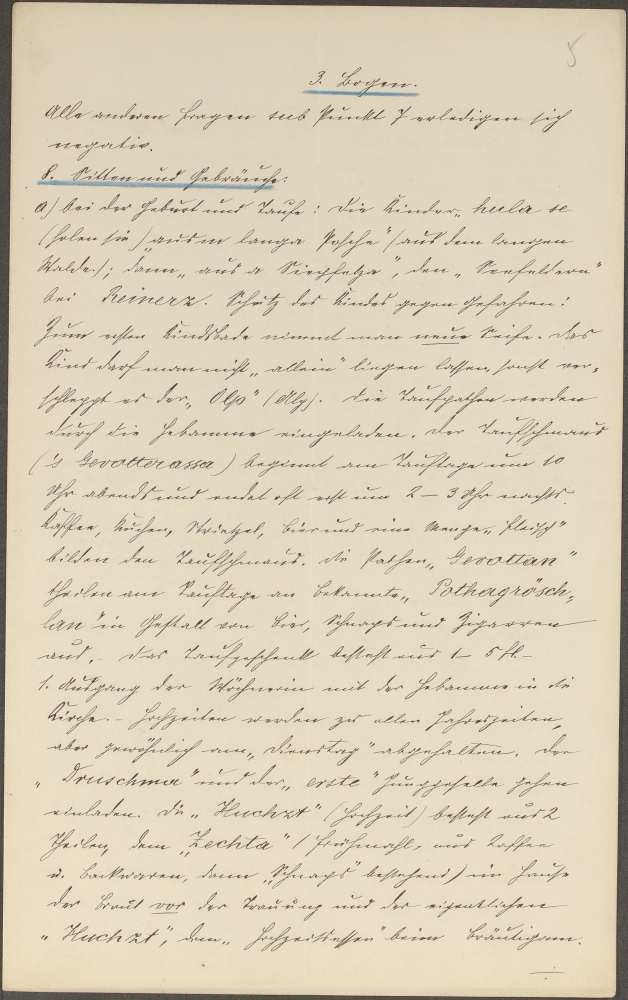 5
3. Bogen.
Alle anderen Fragen sub Punkt 7 erledigen sich
negativ.
8. Sitten und Gebräuche:
a) bei der Geburt und Taufe: Die Kinder „hula se
(holen sie) aus'm langa Posche" (aus dem langen
Walde.); dann „aus a", den „Seefeldern"
bei Reinerz. Schutz des Kindes gegen Gefahren:
Zum ersten Kindsbade nimmt man neue Seife. Das
Kind darf man nicht „allein" liegen lassen, sonst ver-
schleppt es der „Olp" (Alp). Die Taufpathen werden
durch die Hebamme eingeladen. Der Taufschmaus
('s Gevotterassa) beginnt am Tauftage um 10
Uhr abends und endet oft erst um 2 – 3 Uhr nachts.
Kaffee, Kuchen, Striezel, Bier und eine Menge „Fleisch"
bilden den Taufschmaus. Die Pathen „Gevottan"
theilen am Tauftage an Bekannte „Pothagrösch-
lan" in Gestalt von Bier, Schnaps und Zigarren
aus. – Das Taufgeschenk besteht aus 1 – 5 fl. –
1. Ausgang der Wöchnerin mit der Hebamme in die
Kirche. – Hochzeiten werden zu allen Jahreszeiten,
aber gewöhnlich am „Dienstag" abgehalten. Der
„Druschma" und der „erste" Junggeselle gehen
einladen. Die „Huchzt" (Hochzeit) besteht aus 2
Theilen, dem „Zechta" (Frühmahl, aus Kaffee
u. Backwaren, dann „Schnaps" bestehend) im Hause
der Braut vor der Trauung und der eigentlichen
„Huchzt", dem „Hochzeitsessen" beim Bräutigam.